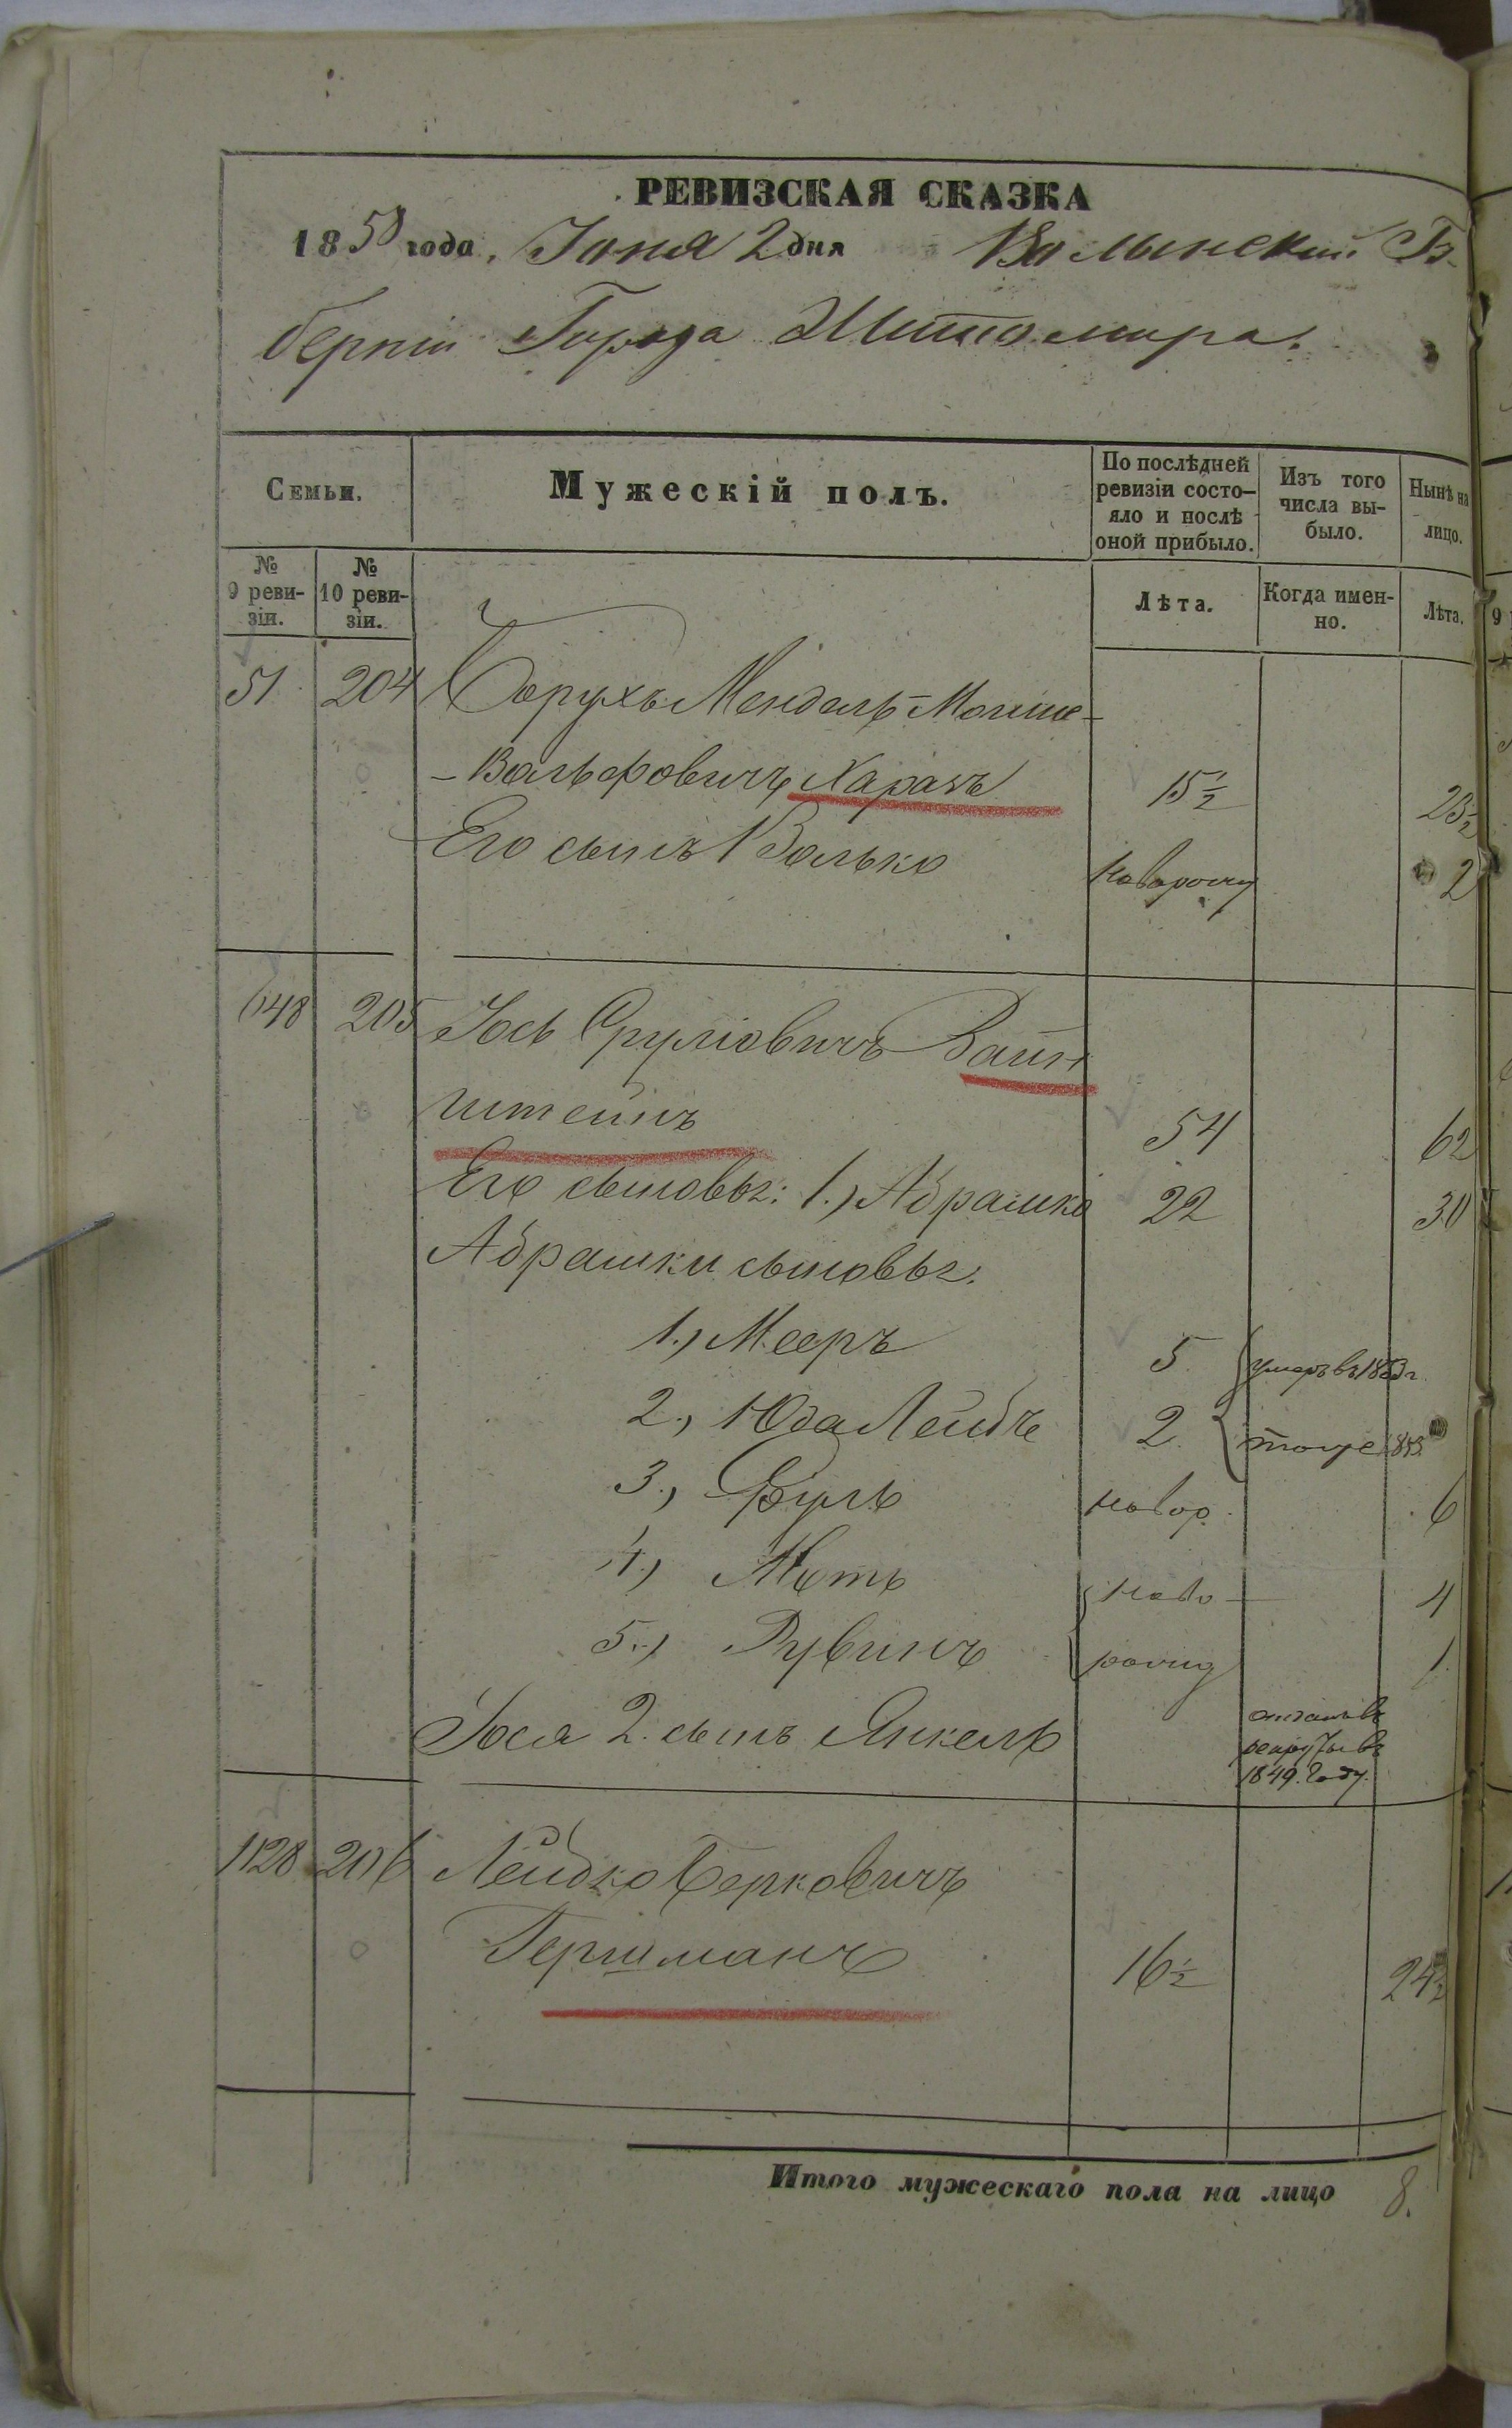 РЕВИЗСКАЯ СКАЗКА
1858 года, Іюня 2 дня Волынской Гу-
берніи Города Житомира.
Семьи.
Мужескій полъ.
По послѣдней ревизіи состо-яло и послѣ оной прибыло.
Изъ того числа вы-было.
Нынѣ на лицо.
№ 9 реви-зіи.
№ 10 реви-зіи.
Лѣта.
Когда имен-но.
Лѣта.
51 204 Борухъ Мендель Мошко-
-Вольфовичъ Харахъ 15½ 23½
Его сынъ Волько новорожд 2
648 205 Іось Сруліовичъ Вайн
штейнъ 54 62
Его сыновья: 1.) Абрашко 22 30
Абрашки сыновья.
1.) Мееръ 5 умеръ въ 1853 г.
2., Юда Лейбъ 2. тоже 1853
3., Сруль новор. 6
4.) Мотъ ново 4
5.) Рувинъ рожд 1.
Іося 2. сынъ Янкель отданъ въ рекруты въ 1849. году.
1128 206 Лейбко Берковичъ
Гершманъ 16½ 24½
Итого мужескаго пола на лицо 8.